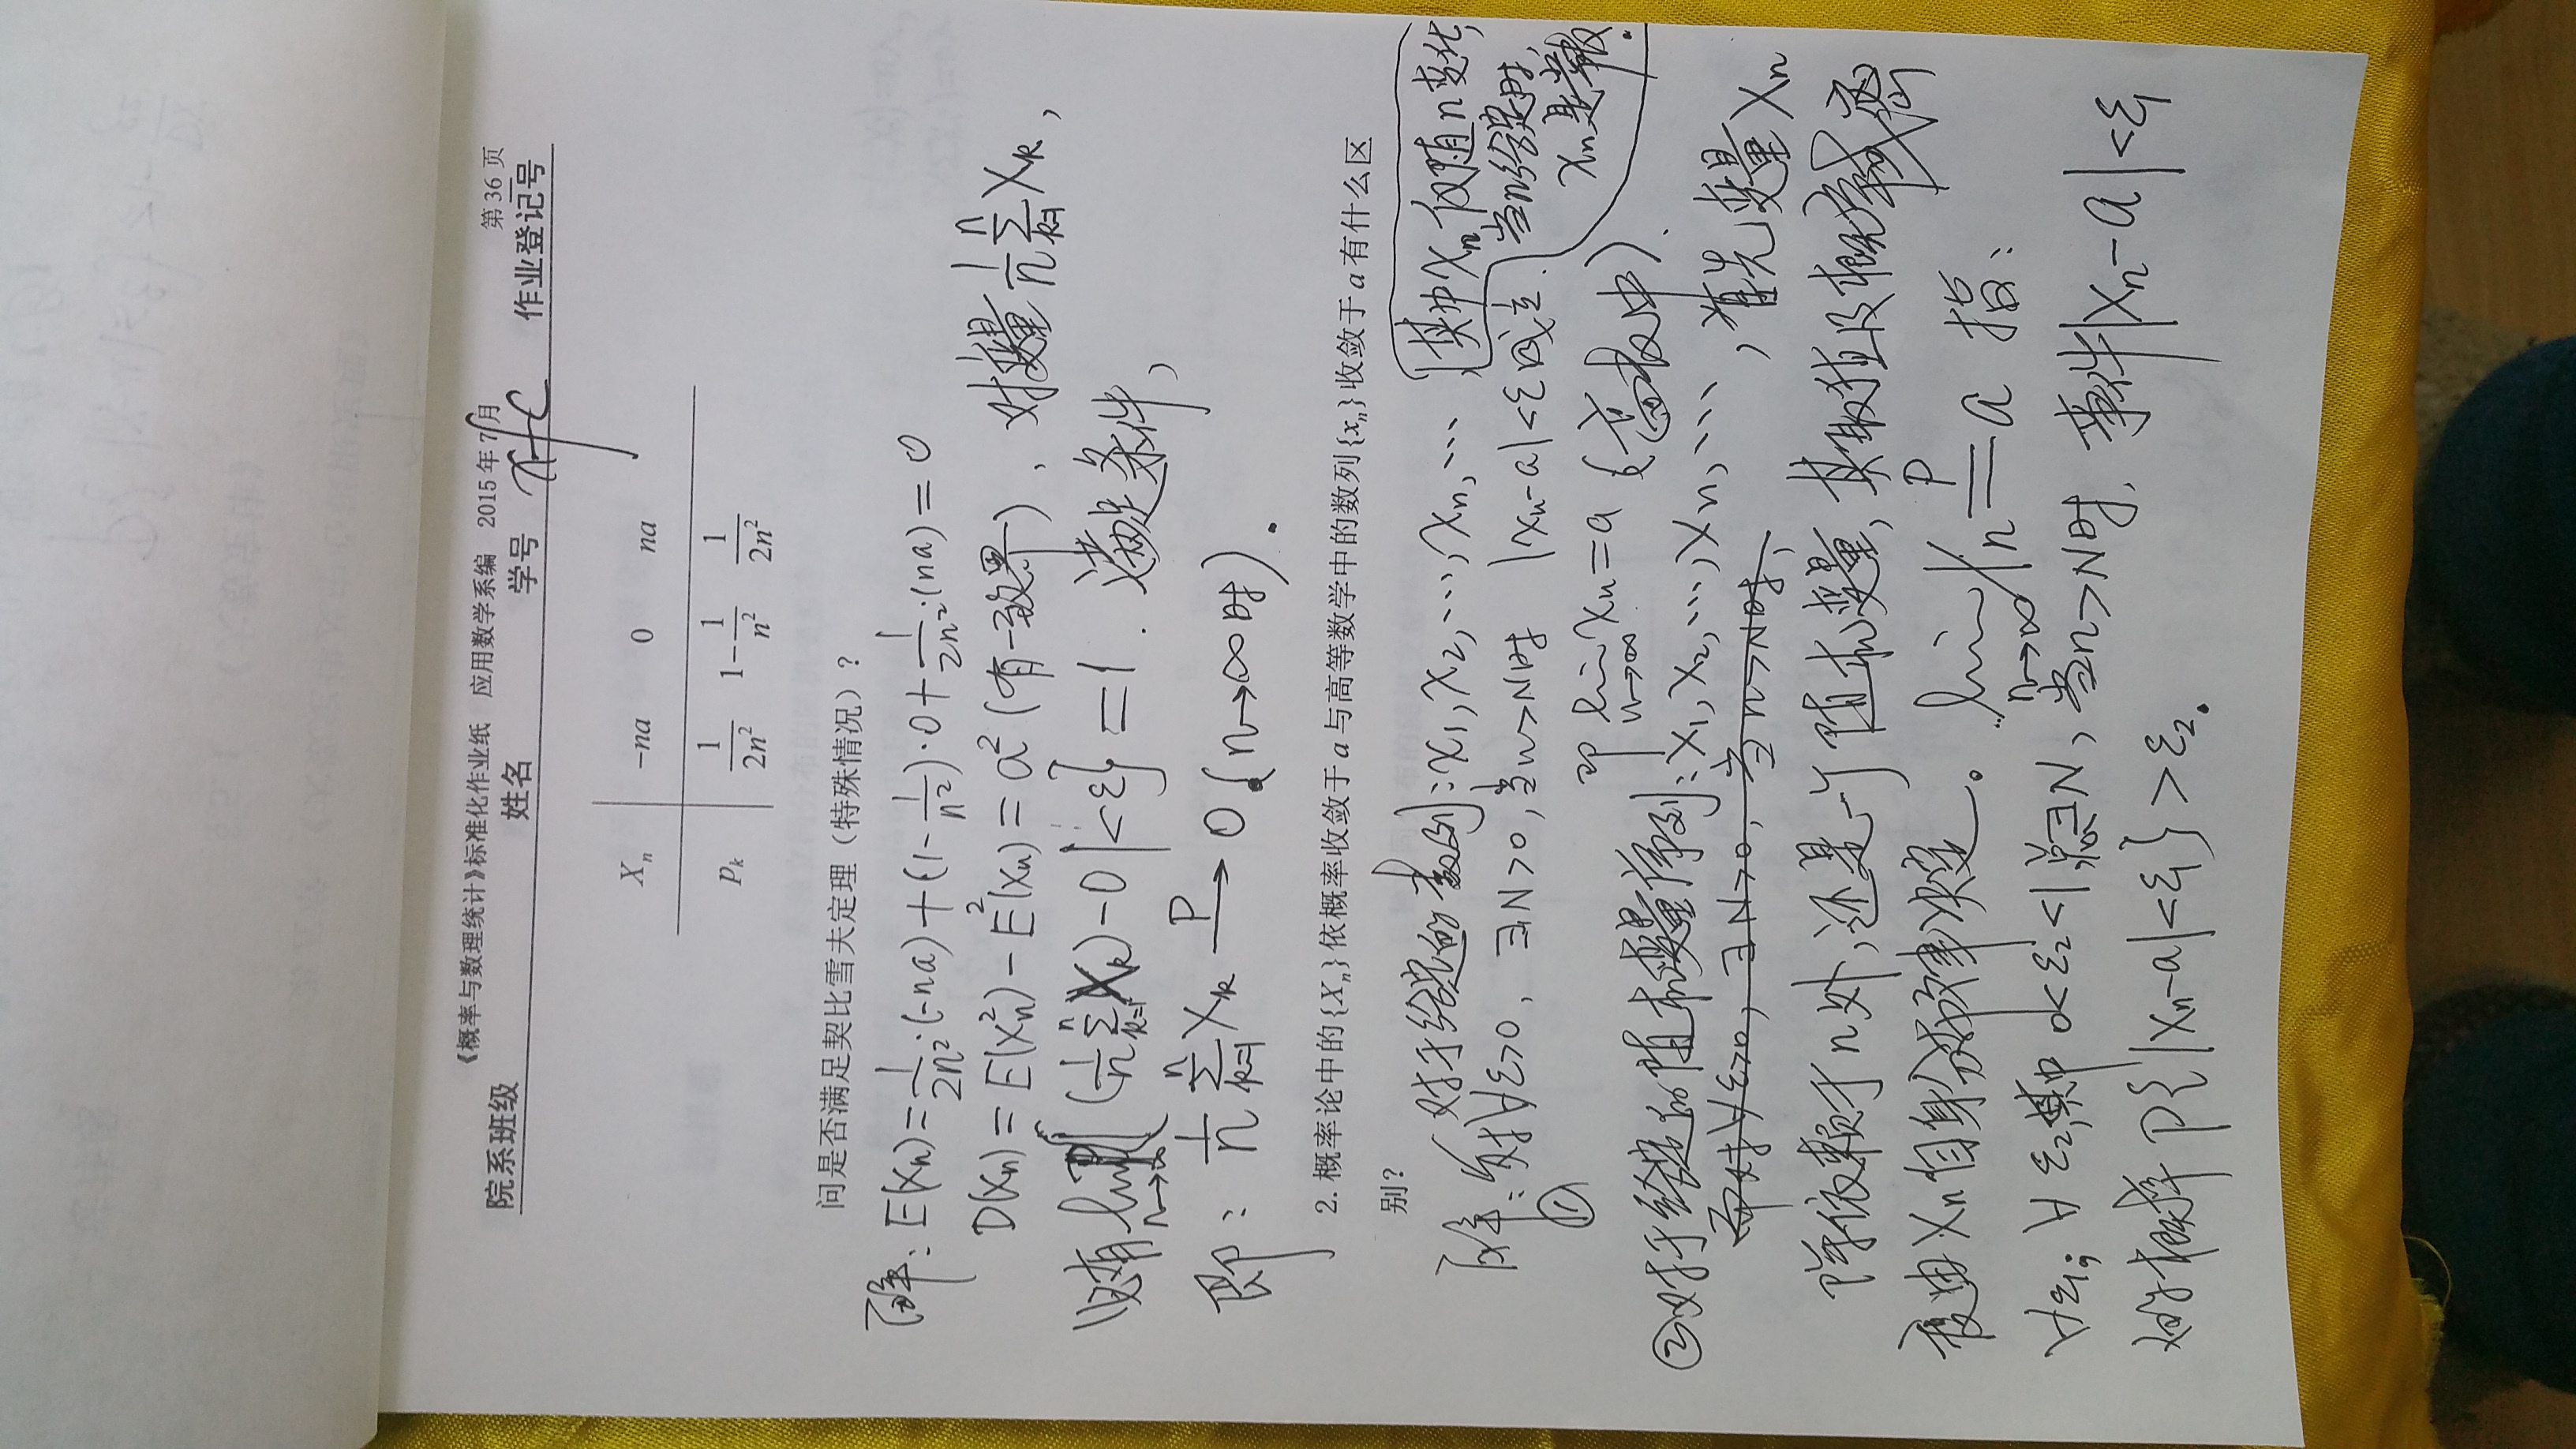 《概率与数理统计》标准化作业纸 应用数学系编 2015年7月 第36页
院系班级 姓名 学号 作业登记号
X_n -na 0 na
p_k 1/(2n²) 1-1/n² 1/(2n²)
问是否满足契比雪夫定理（特殊情况）？
解: E(X_n)=1/(2n²)·(-na)+(1-1/n²)·0+1/(2n²)·(na)=0
D(X_n)=E(X_n²)-E²(X_n)=a²(有一致界), 对变量 1/n ∑_{k=1}^{n} X_k,
必有 lim_{n→∞} P{|(1/n ∑_{k=1}^{n} X_k)-0|<ε}=1. 满足条件,
即: 1/n ∑_{k=1}^{n} X_k —P→ 0 (n→∞时).
2. 概率论中的{X_n}依概率收敛于a与高等数学中的数列{x_n}收敛于a有什么区
别？
解: 对于给定的数列: x_1, x_2, …, x_n, … , 其中x_n仅随n变化,
① 对∀ε>0, ∃N>0, 当n>N时 |x_n-a|<ε成立. 当n给定时,
x_n是常数.
即 lim_{n→∞} x_n=a (高数中).
②对于给定的随机变量序列: X_1, X_2, …, X_n, …
而对∀ε>0, ∃N>0, 当n>N时, , 首先变量X_n
除依赖于n外, 还是一个随机变量, 其取值及概率或密
度由X_n自身分布律决定。 lim_{n→∞} X_n =^P a 指:
∀ε_1; ∀ε_2,其中 0<ε_2<1,总∃N, 当n>N时, 事件|X_n-a|<ε_1
的概率 P{|X_n-a|<ε_1}>ε_2.